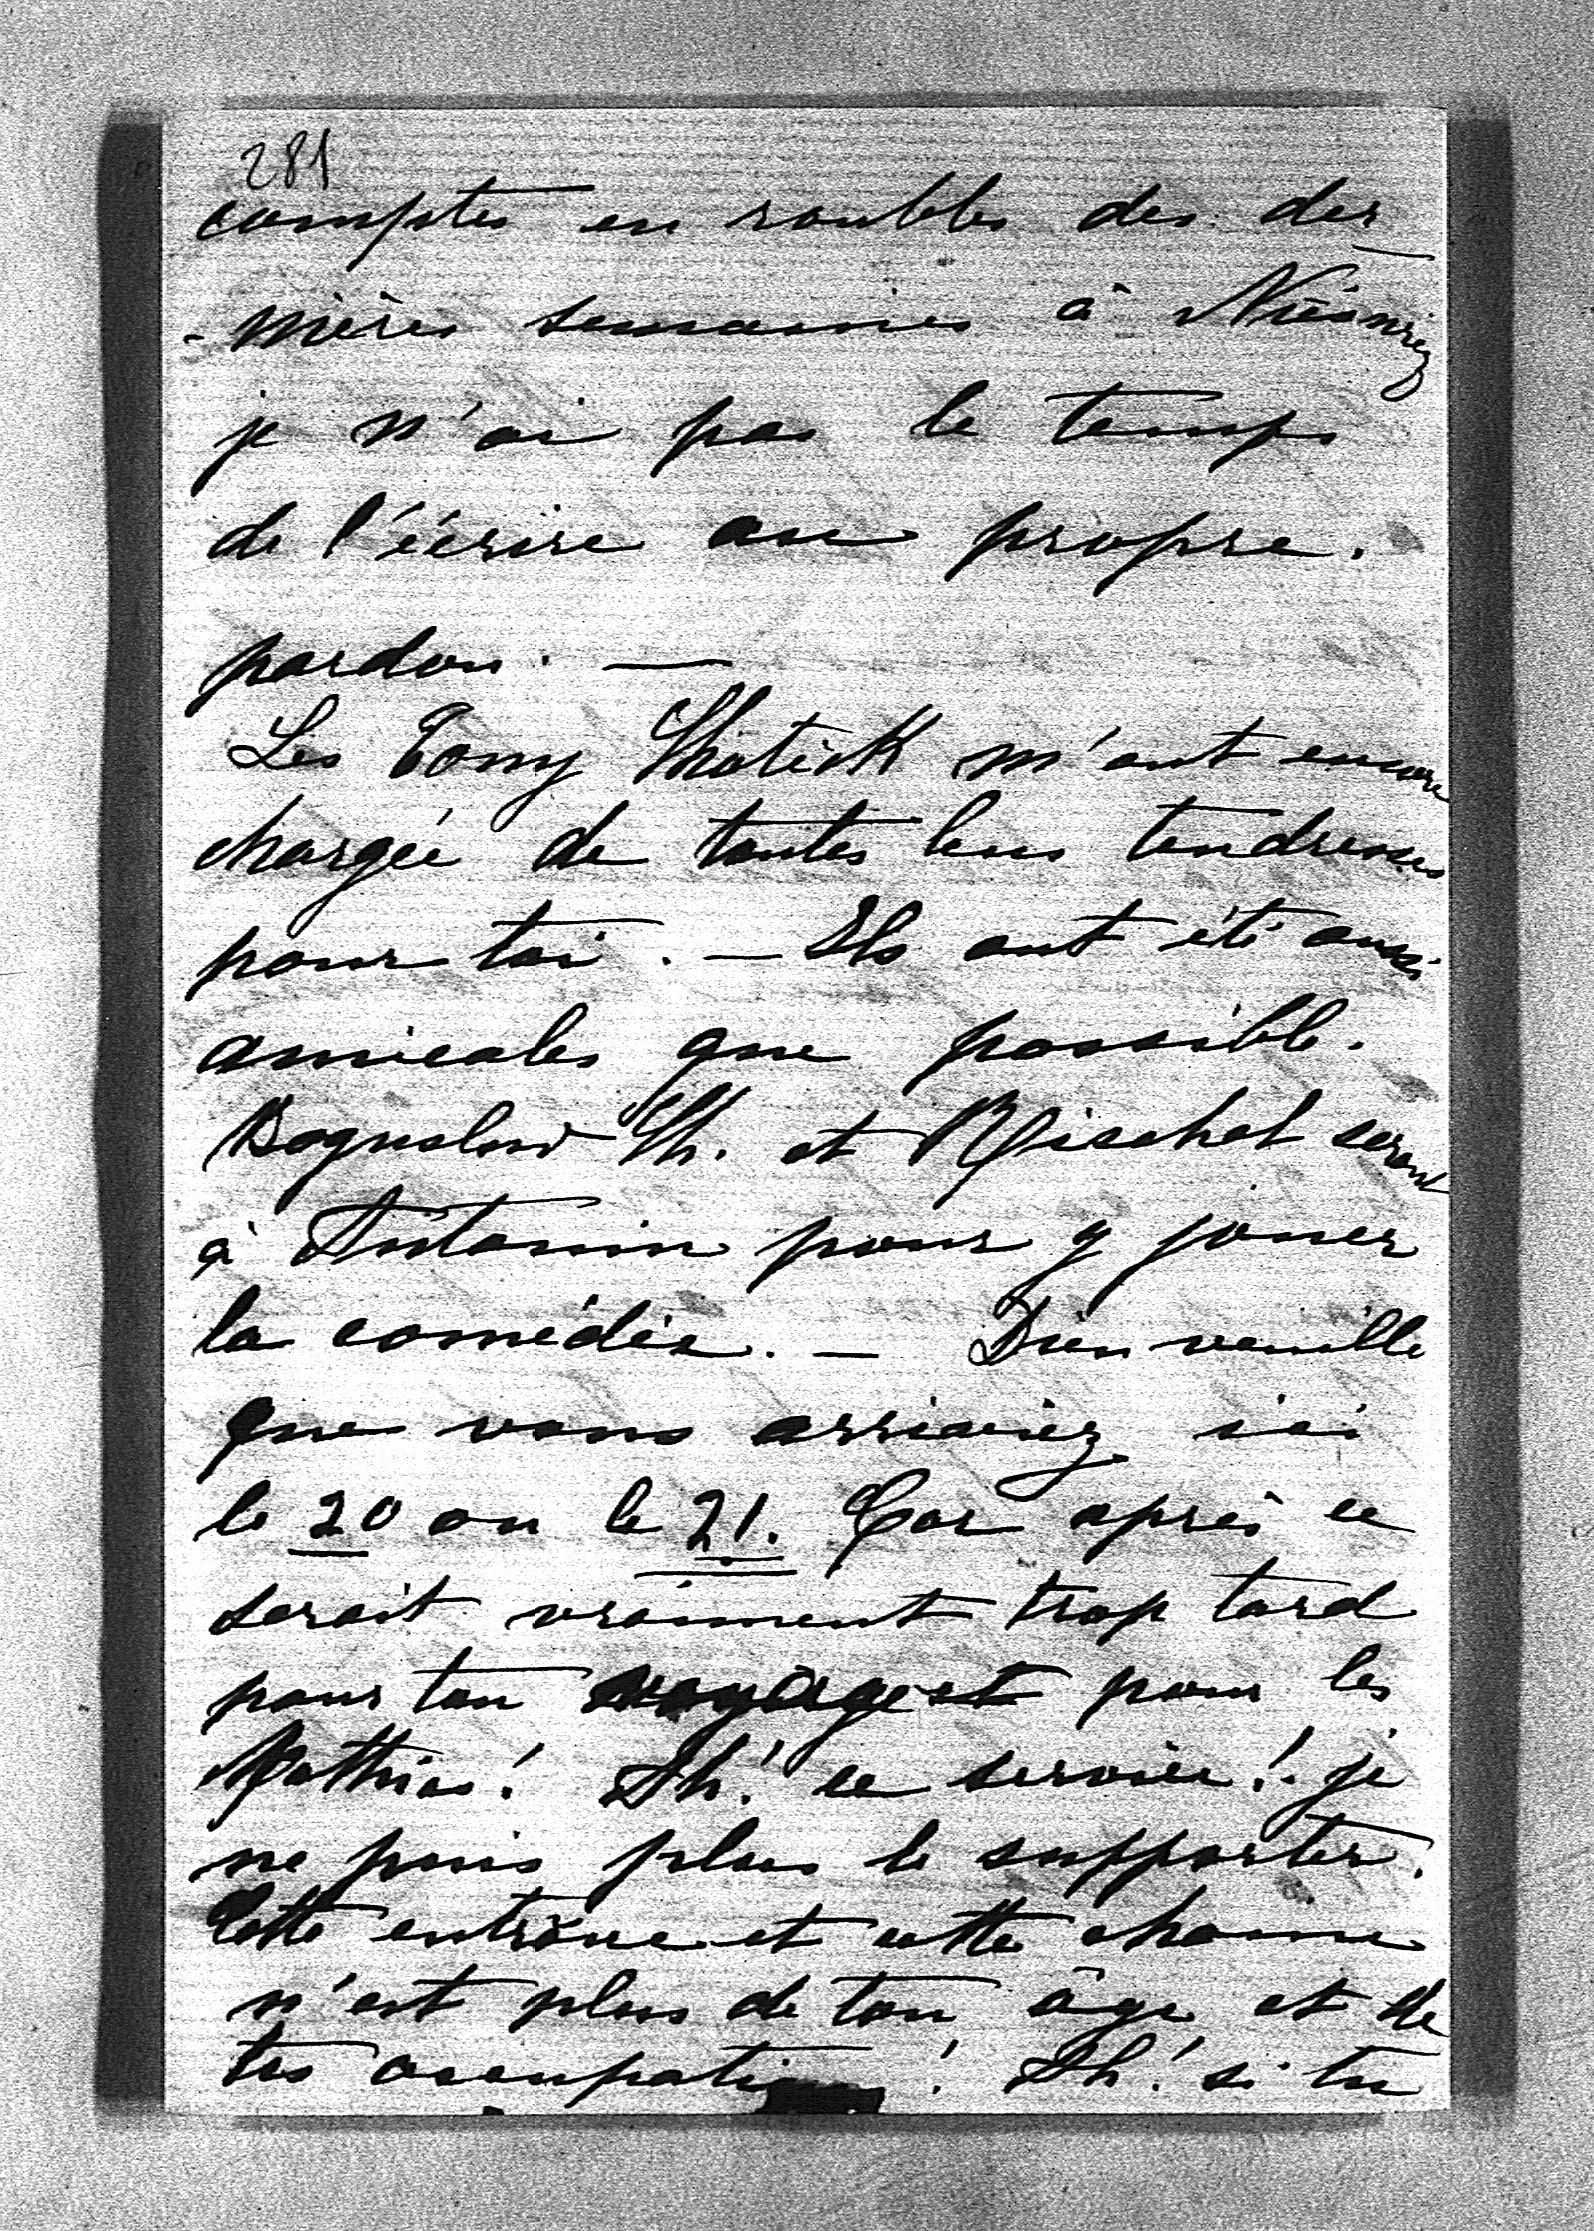 281
comptes en roubles des der
- nières semaines à Nieśwież
je n'ai pas le temps
de l'écrire au propre.
pardon. —
Les Tomy m'ont encore
chargée de toutes leurs tendresses
pour toi. — Ils ont été aussi
amicales que possible.
Boguslaw Th. et Mischel seront
à Antonin pour y jouer
la comédie. — Dieu veuille
que vous arriviez ici
le 20 ou le 21. Car après ce
serait vraiment trop tard
pour ton voyage et pour les
Mathias! Ah! ce service! je
ne puis plus le supporter.
Cette entrâve et cette chaîne
n'est plus de ton âge et de
tes occupations! Ah! si tu